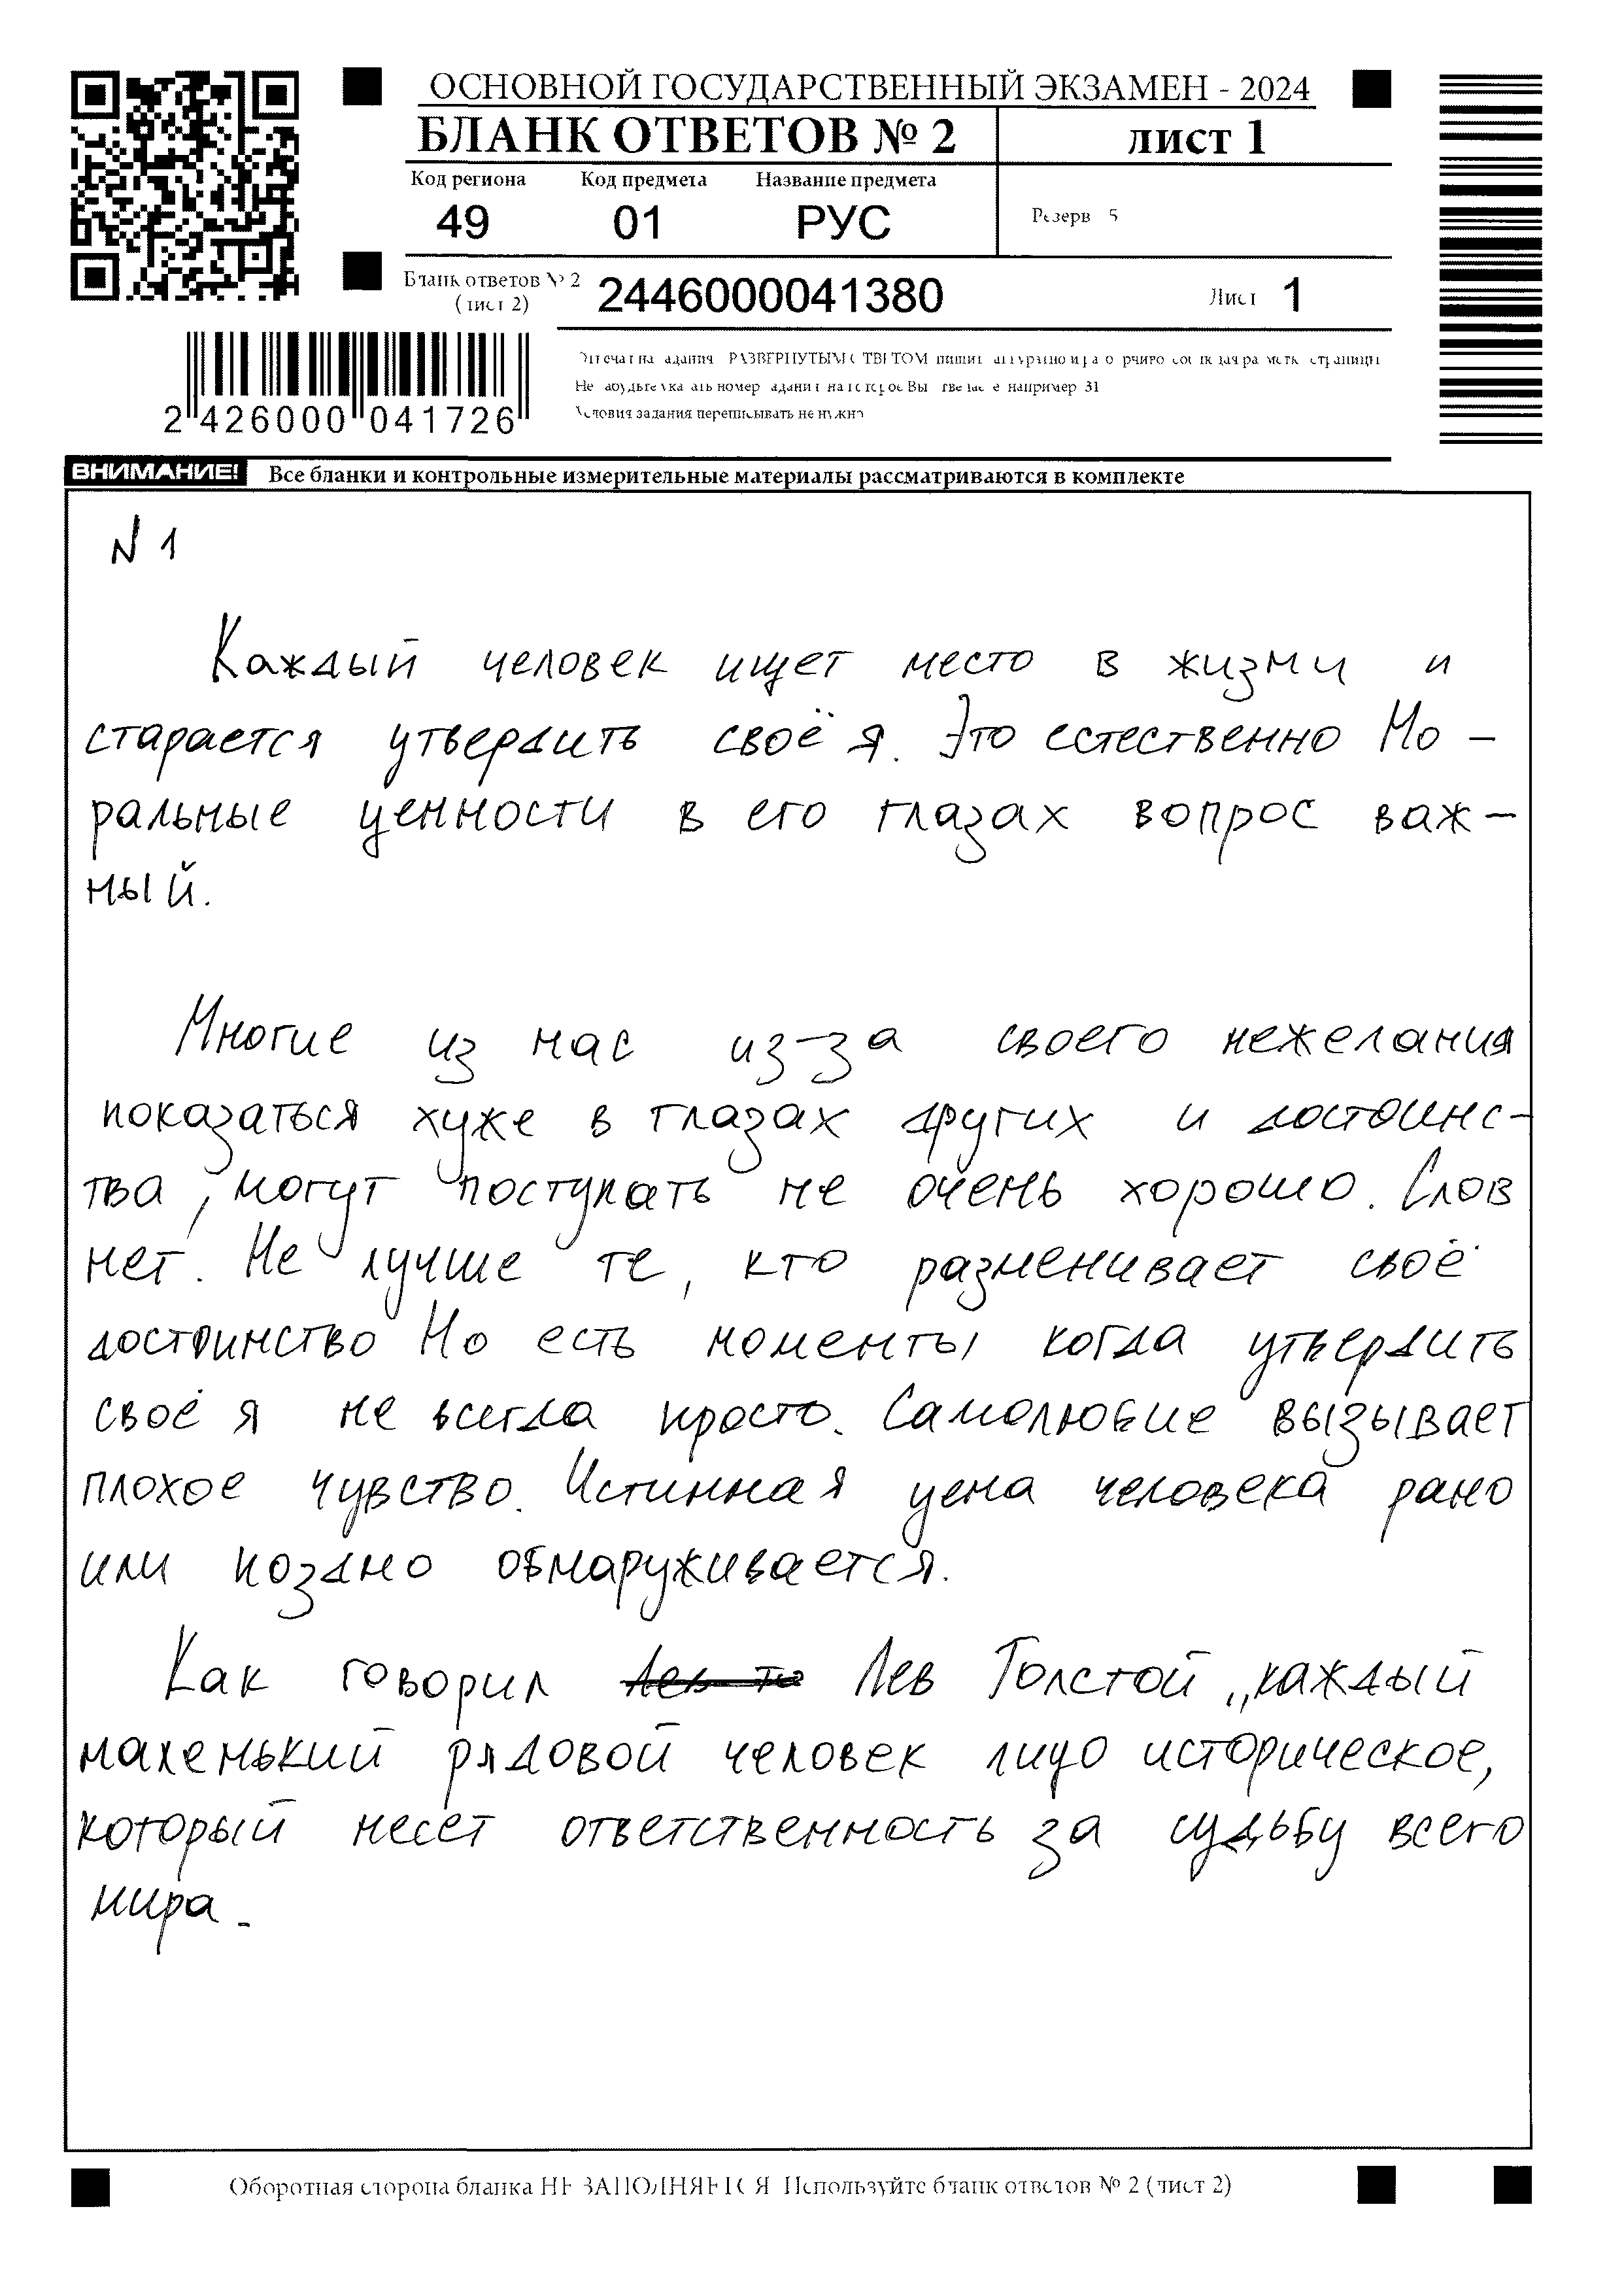 ОСНОВНОЙ ГОСУДАРСТВЕННЫЙ ЭКЗАМЕН - 2024
БЛАНК ОТВЕТОВ № 2 лист 1
Код региона Код предмета Название предмета
49 01 РУС Резерв 5
Бланк ответов № 2
(лист 2) 2446000041380 Лист 1
2 426000 041726
РАЗВЕРНУТЫМ
номер например 31
Условия задания переписывать не нужно
ВНИМАНИЕ! Все бланки и контрольные измерительные материалы рассматриваются в комплекте
N 1
Каждый человек ищет место в жизни и
старается утвердить своё я. Это естественно Мо -
ральные ценности в его глазах вопрос важ-
ный.
Многие из нас из-за своего нежелания
показаться хуже в глазах других и достоинс-
тва, могут поступать не очень хорошо. Слов
нет. Не лучше те, кто разменивает своё
достоинство Но есть моменты когда утвердить
своё я не всегда просто. Самолюбие вызывает
плохое чувство. Истинная цена человека рано
или поздно обнаруживается.
Как говорил Лев Толстой „каждый
маленький рядовой человек лицо историческое,
который несёт ответственность за судьбу всего
мира.
Оборотная сторона бланка НЕ ЗАПОЛНЯЕТСЯ Используйте бланк ответов № 2 (лист 2)